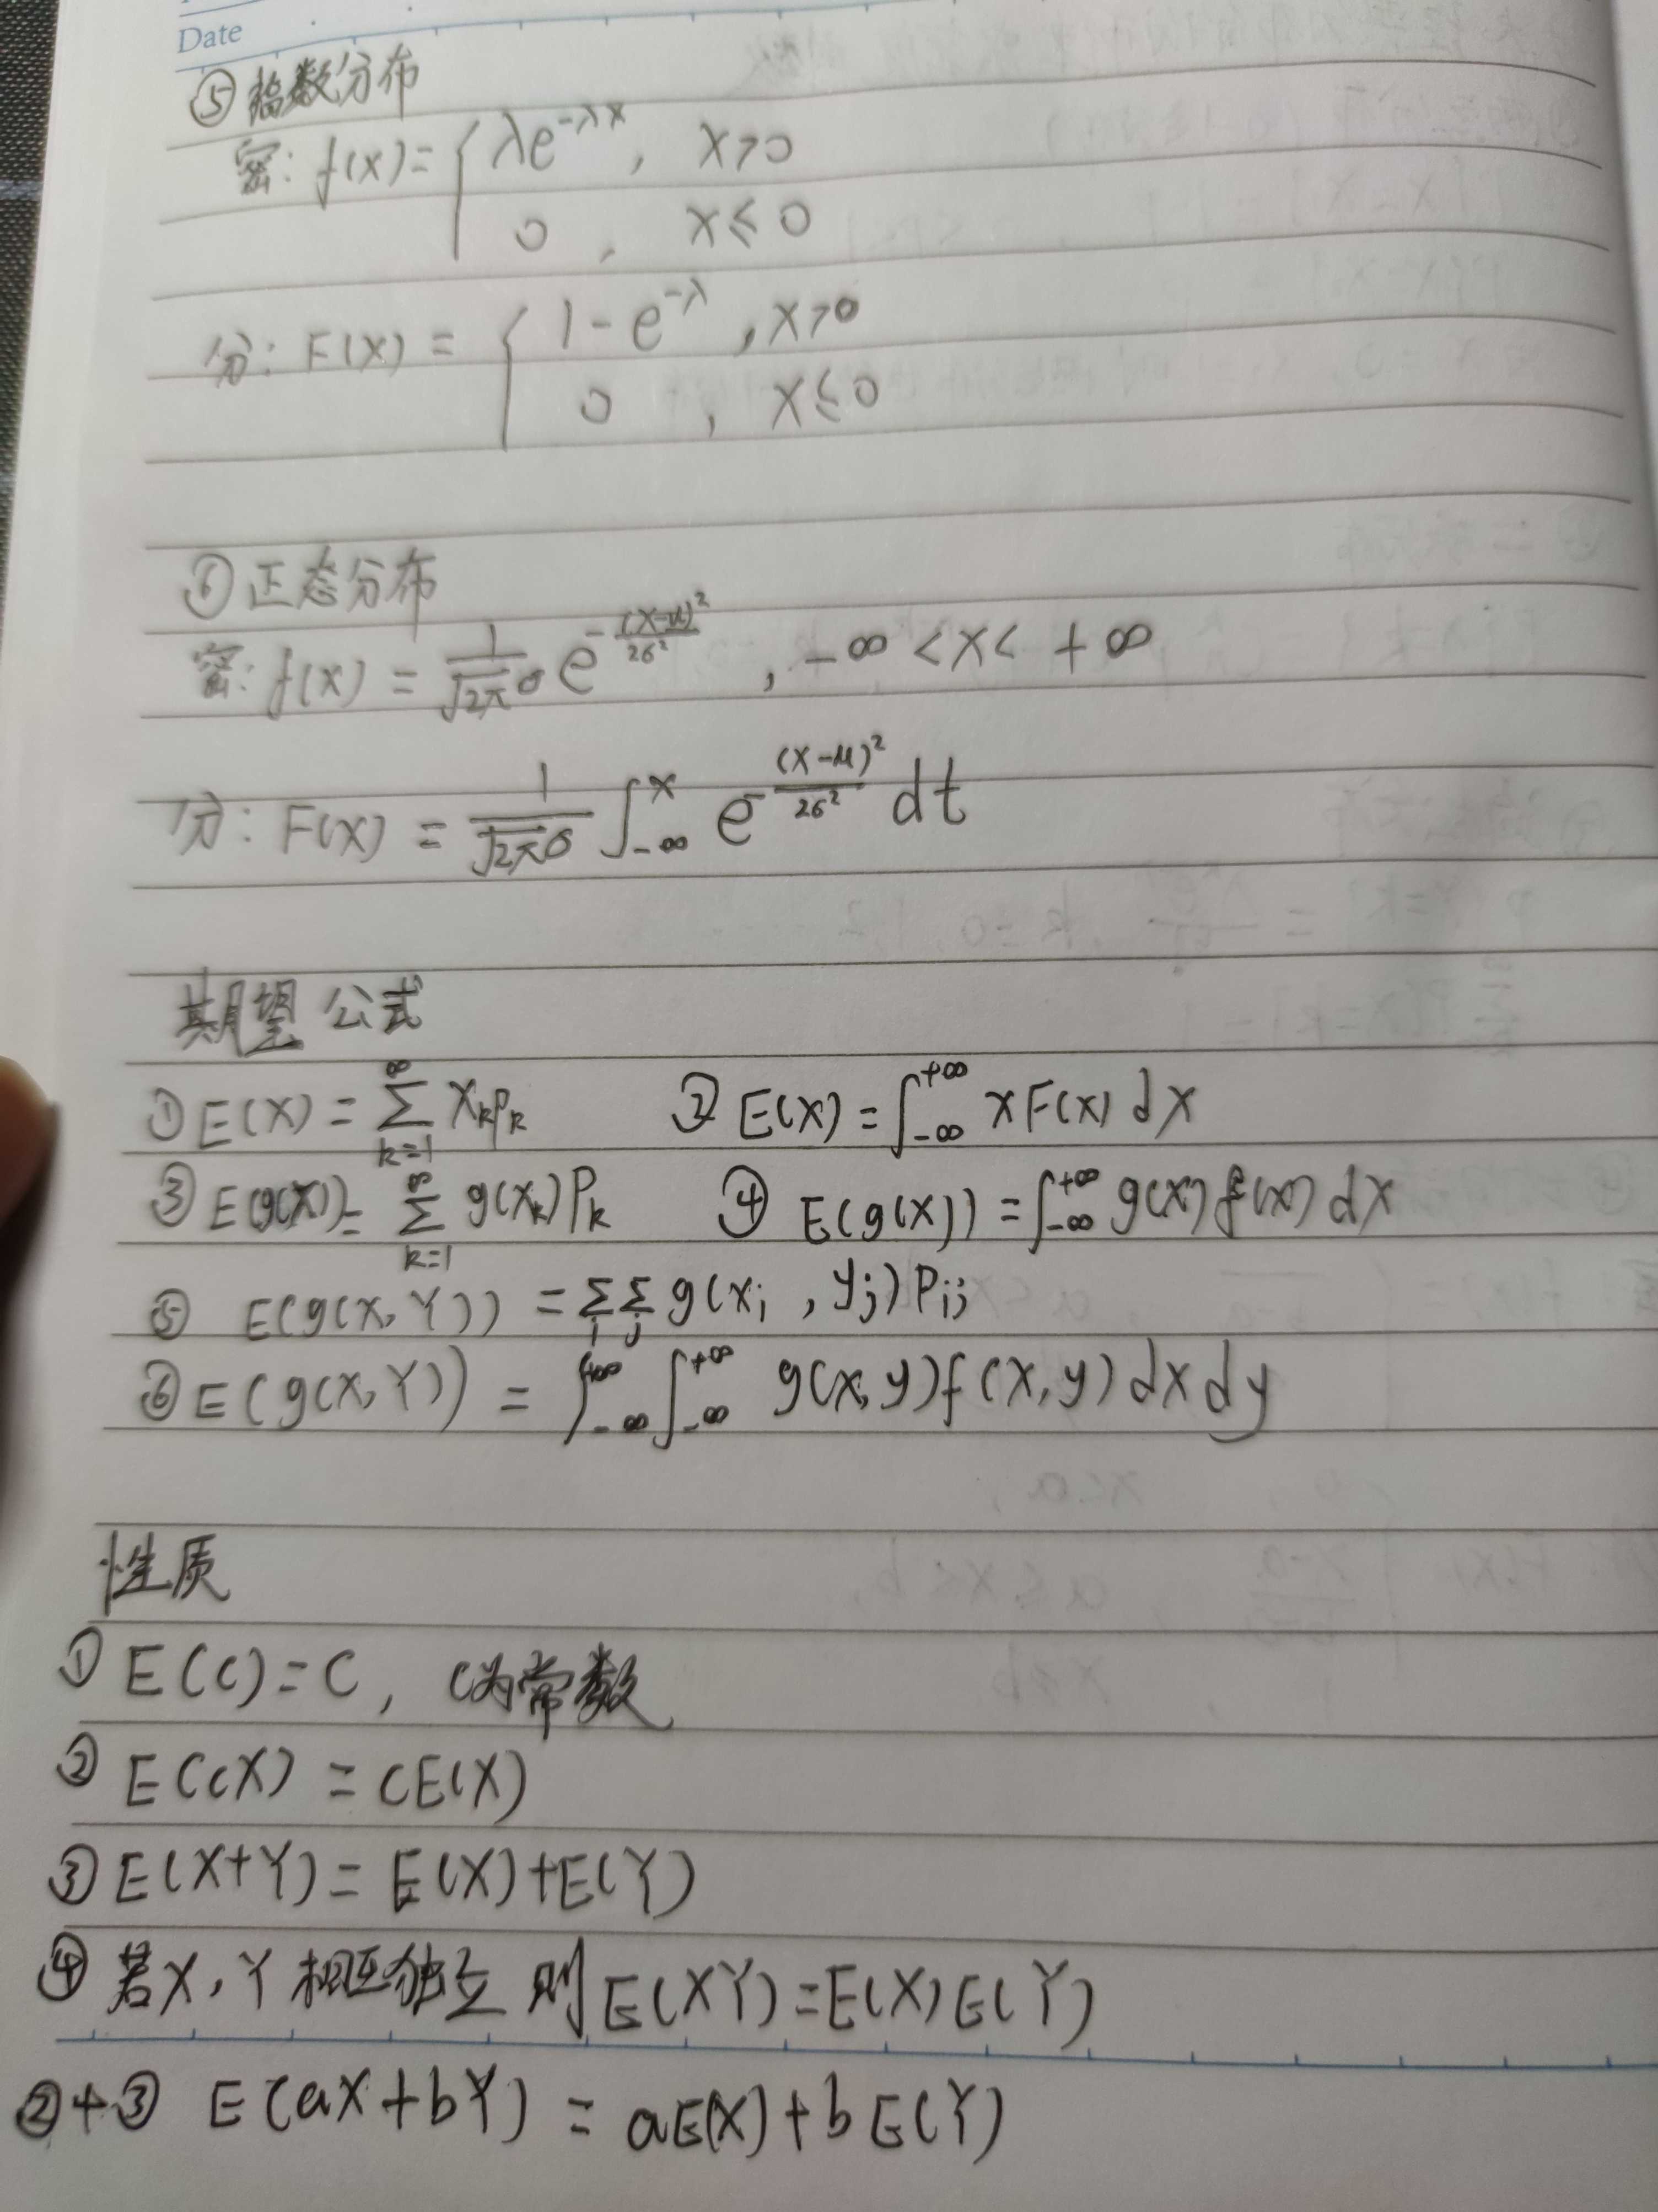 Date
⑤指数分布
密: f(x)= { λe^{-λx}, x>0
0 , x≤0
分: F(x) = { 1-e^{-λ} , x>0
0 , x≤0
⑥正态分布
密: f(x) = \frac{1}{\sqrt{2π}σ} e^{-\frac{(x-μ)^2}{2σ^2}} , -∞ <x< +∞
分: F(x) = \frac{1}{\sqrt{2π}σ} ∫_{-∞}^{x} e^{-\frac{(x-μ)^2}{2σ^2}} dt
期望公式
①E(X) = \sum_{k=1}^{∞} x_k p_k ② E(X) = ∫_{-∞}^{+∞} xF(x) dx
③E(g(X))= \sum_{k=1}^{∞} g(x_k)P_k ④ E(g(X)) = ∫_{-∞}^{+∞} g(x) f(x) dx
⑤ E(g(X,Y)) = \sum_i \sum_j g(x_i , y_j) P_{ij}
⑥E(g(X,Y)) = ∫_{-∞}^{+∞} ∫_{-∞}^{+∞} g(x,y)f(x,y)dxdy
性质
①E(C)=C, C为常数
②E(CX) = CE(X)
③E(X+Y)= E(X)+E(Y)
④若X,Y相互独立 则E(XY)=E(X)E(Y)
②+③ E(aX+bY) = aE(X)+bE(Y)